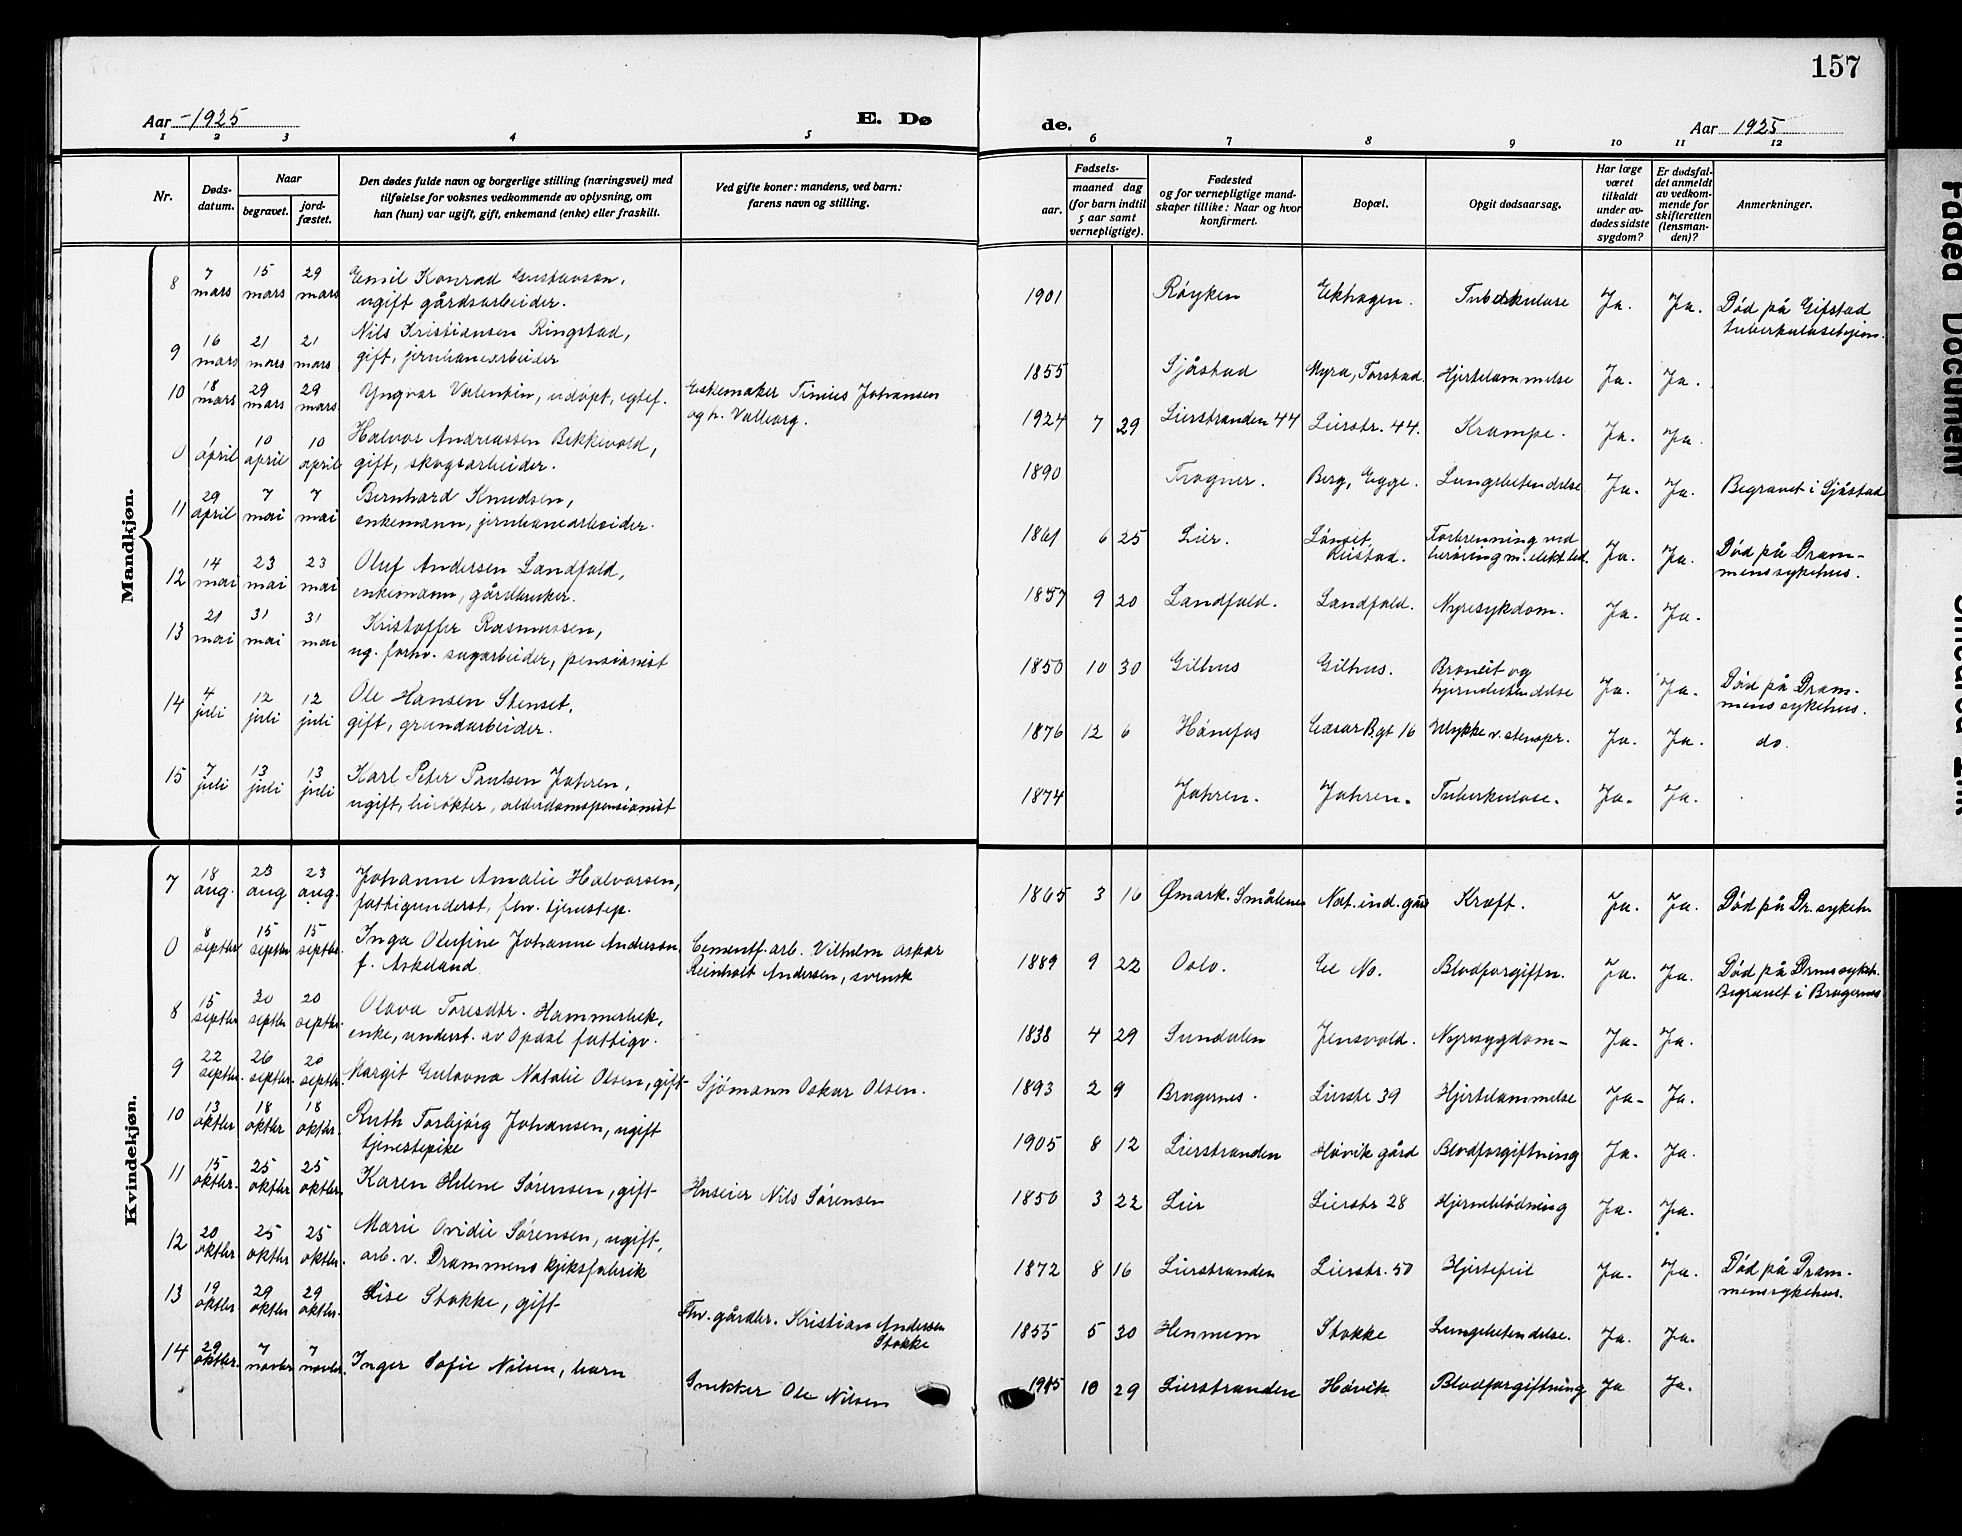 157
Aar -1925
E. Dø
de.
Aar 1925
1 2 3 4 5 6 7 8 9 10 11 12
Nr.
Døds-
datum.
Naar
begravet.
jord-
fæstet.
Den dødes fulde navn og borgerlige stilling (næringsvei) med
tilføielse for voksnes vedkommende av oplysning, om
han (hun) var ugift, gift, enkemand (enke) eller fraskilt.
Ved gifte koner: mandens, ved barn:
farens navn og stilling.
Fødsels-
aar.
maaned dag
(for barn indtil
5 aar samt
vernepligtige).
Fødested
og for vernepligtige mand-
skaper tillike: Naar og hvor
konfirmert.
Bopæl.
Opgit dødsaarsag.
Har læge
været
tilkaldt
under av-
dødes sidste
sygdom?
Er dødsfal-
det anmeldt
av vedkom-
mende for
skifteretten
(lensman-
den)?
Anmerkninger.
Mandkjøn.
8 7 mars 15 mars 29 mars Emil Konrad Gustavson,
ugift gårdsarbeider.
1901 Røyken Ekhagen. Tuberkulose Ja. Ja. Død på Gifstad
tuberkulosehjem.
9 16 mars 21 mars 21 mars Nils Kristiansen Ringstad,
gift, jernbanearbeider
1855 Sjåstad Myra, Torstad. Hjertelammelse Ja. Ja.
10 18 mars 29 mars 29 mars Yngvar Valentin, udøpt, egtef. Eskemaker Tinius Johansen
og h. Valborg.
1924 7 29 Lierstranden 44 Lierstr. 44. Krampe. Ja. Ja.
0 1 april 10 april 10 april Halvor Andreassen Bekkevold,
gift, skogsarbeider.
1890 Frogner. Berg, Egge. Lungebetendelse Ja. Ja. Begravet i Sjåstad
11 29 april 7 mai 7 mai Bernhard Knudsen,
enkemann, jernbanearbeider.
1861 6 25 Lier. Lønset,
Reistad. Forbrenning ved
berøring m. elekt. led. Ja. Ja. Død på Dram-
mens sykehus.
12 14 mai 23 mai 23 mai Oluf Andersen Landfald,
enkemann, gårdbruker.
1857 9 20 Landfald. Landfald. Nyresykdom. Ja. Ja.
13 21 mai 31 mai 31 mai Kristoffer Rasmussen,
ug. forhv. sagarbeider, pensionist
1850 10 30 Gilhus Gilhus. Bronkit og
hjernebetendelse Ja. Ja. Død på Dram-
mens sykehus.
14 4 juli 12 juli 12 juli Ole Hansen Stenset,
gift, grundarbeider.
1876 12 6 Hønefos Cæsar Bgt 16 Ulykke v. stenspr. Ja. Ja. do.
15 7 juli 13 juli 13 juli Karl Peter Paulsen Jahren,
ugift, birøkter, alderdomspensionist
1874 Jahren. Jahren. Tuberkulose. Ja. Ja.
Kvindekjøn.
7 18 aug. 23 aug 23 aug. Johanne Amalie Halvorsen,
fattigunderst, fhv. tjenestep.
1865 3 16 Ømark. Smålenene Nøt. ind. gård Kræft. Ja. Ja. Død på Dr. sykeh.
0 8 septbr 15 septbr 15 septbr. Inga Olufine Johanne Anderson
f. Askeland Cementf. arb. Vilhelm Oskar
Reinholt Andersen, svensk
1889 9 22 Oslo. Ee No. Blodforgiftn. Ja. Ja. Død på Drms sykeh.
Begravet i Bragernes
8 15 septbr 20 septbr 20 septbr. Olava Toresdtr. Hammerbek,
enke, underst. av Opdal fattigv.
1838 4 29 Sundalen Jensvold. Nyresygdom- Ja. Ja.
9 22 septbr. 26 septbr. 20 septbr. Margit Gulovna Natalie Olsen, gift Sjømann Oskar Olsen.
1893 2 9 Bragernes. Lierstr 39 Hjertelammelse Ja. Ja.
10 13 oktbr 18 oktbr 18 oktbr. Ruth Torbjørg Johansen, ugift
tjenestepike
1905 8 12 Lierstranden Høvik gård Blodforgiftning Ja. Ja.
11 15 oktbr. 25 oktbr 25 oktbr. Karen Helene Sørensen, gift Huseier Nils Sørensen
1850 3 22 Lier Lierstr 28 Hjerneblødning Ja. Ja.
12 20 oktbr 25 oktbr 25 oktbr. Marie Ovidie Sørensen, ugift,
arb. v. Drammens kjeksfabrik
1872 8 16 Lierstranden Lierstr. 50 Hjertefeil Ja. Ja. Død på Dram-
mens sykehus.
13 19 oktbr. 29 oktbr 29 oktbr. Lise Stokke, gift Fhv. gårdbr. Kristian Andersen
Stokke
1855 5 30 Hennum Stokke Lungebetendelse. Ja. Ja.
14 29 oktbr. 7 novbr 7 novbr. Inger Sofie Nilsen, barn Snekker Ole Nilsen
1915 10 29 Lierstranden Høvik Blodforgiftning Ja Ja.
Faded Document